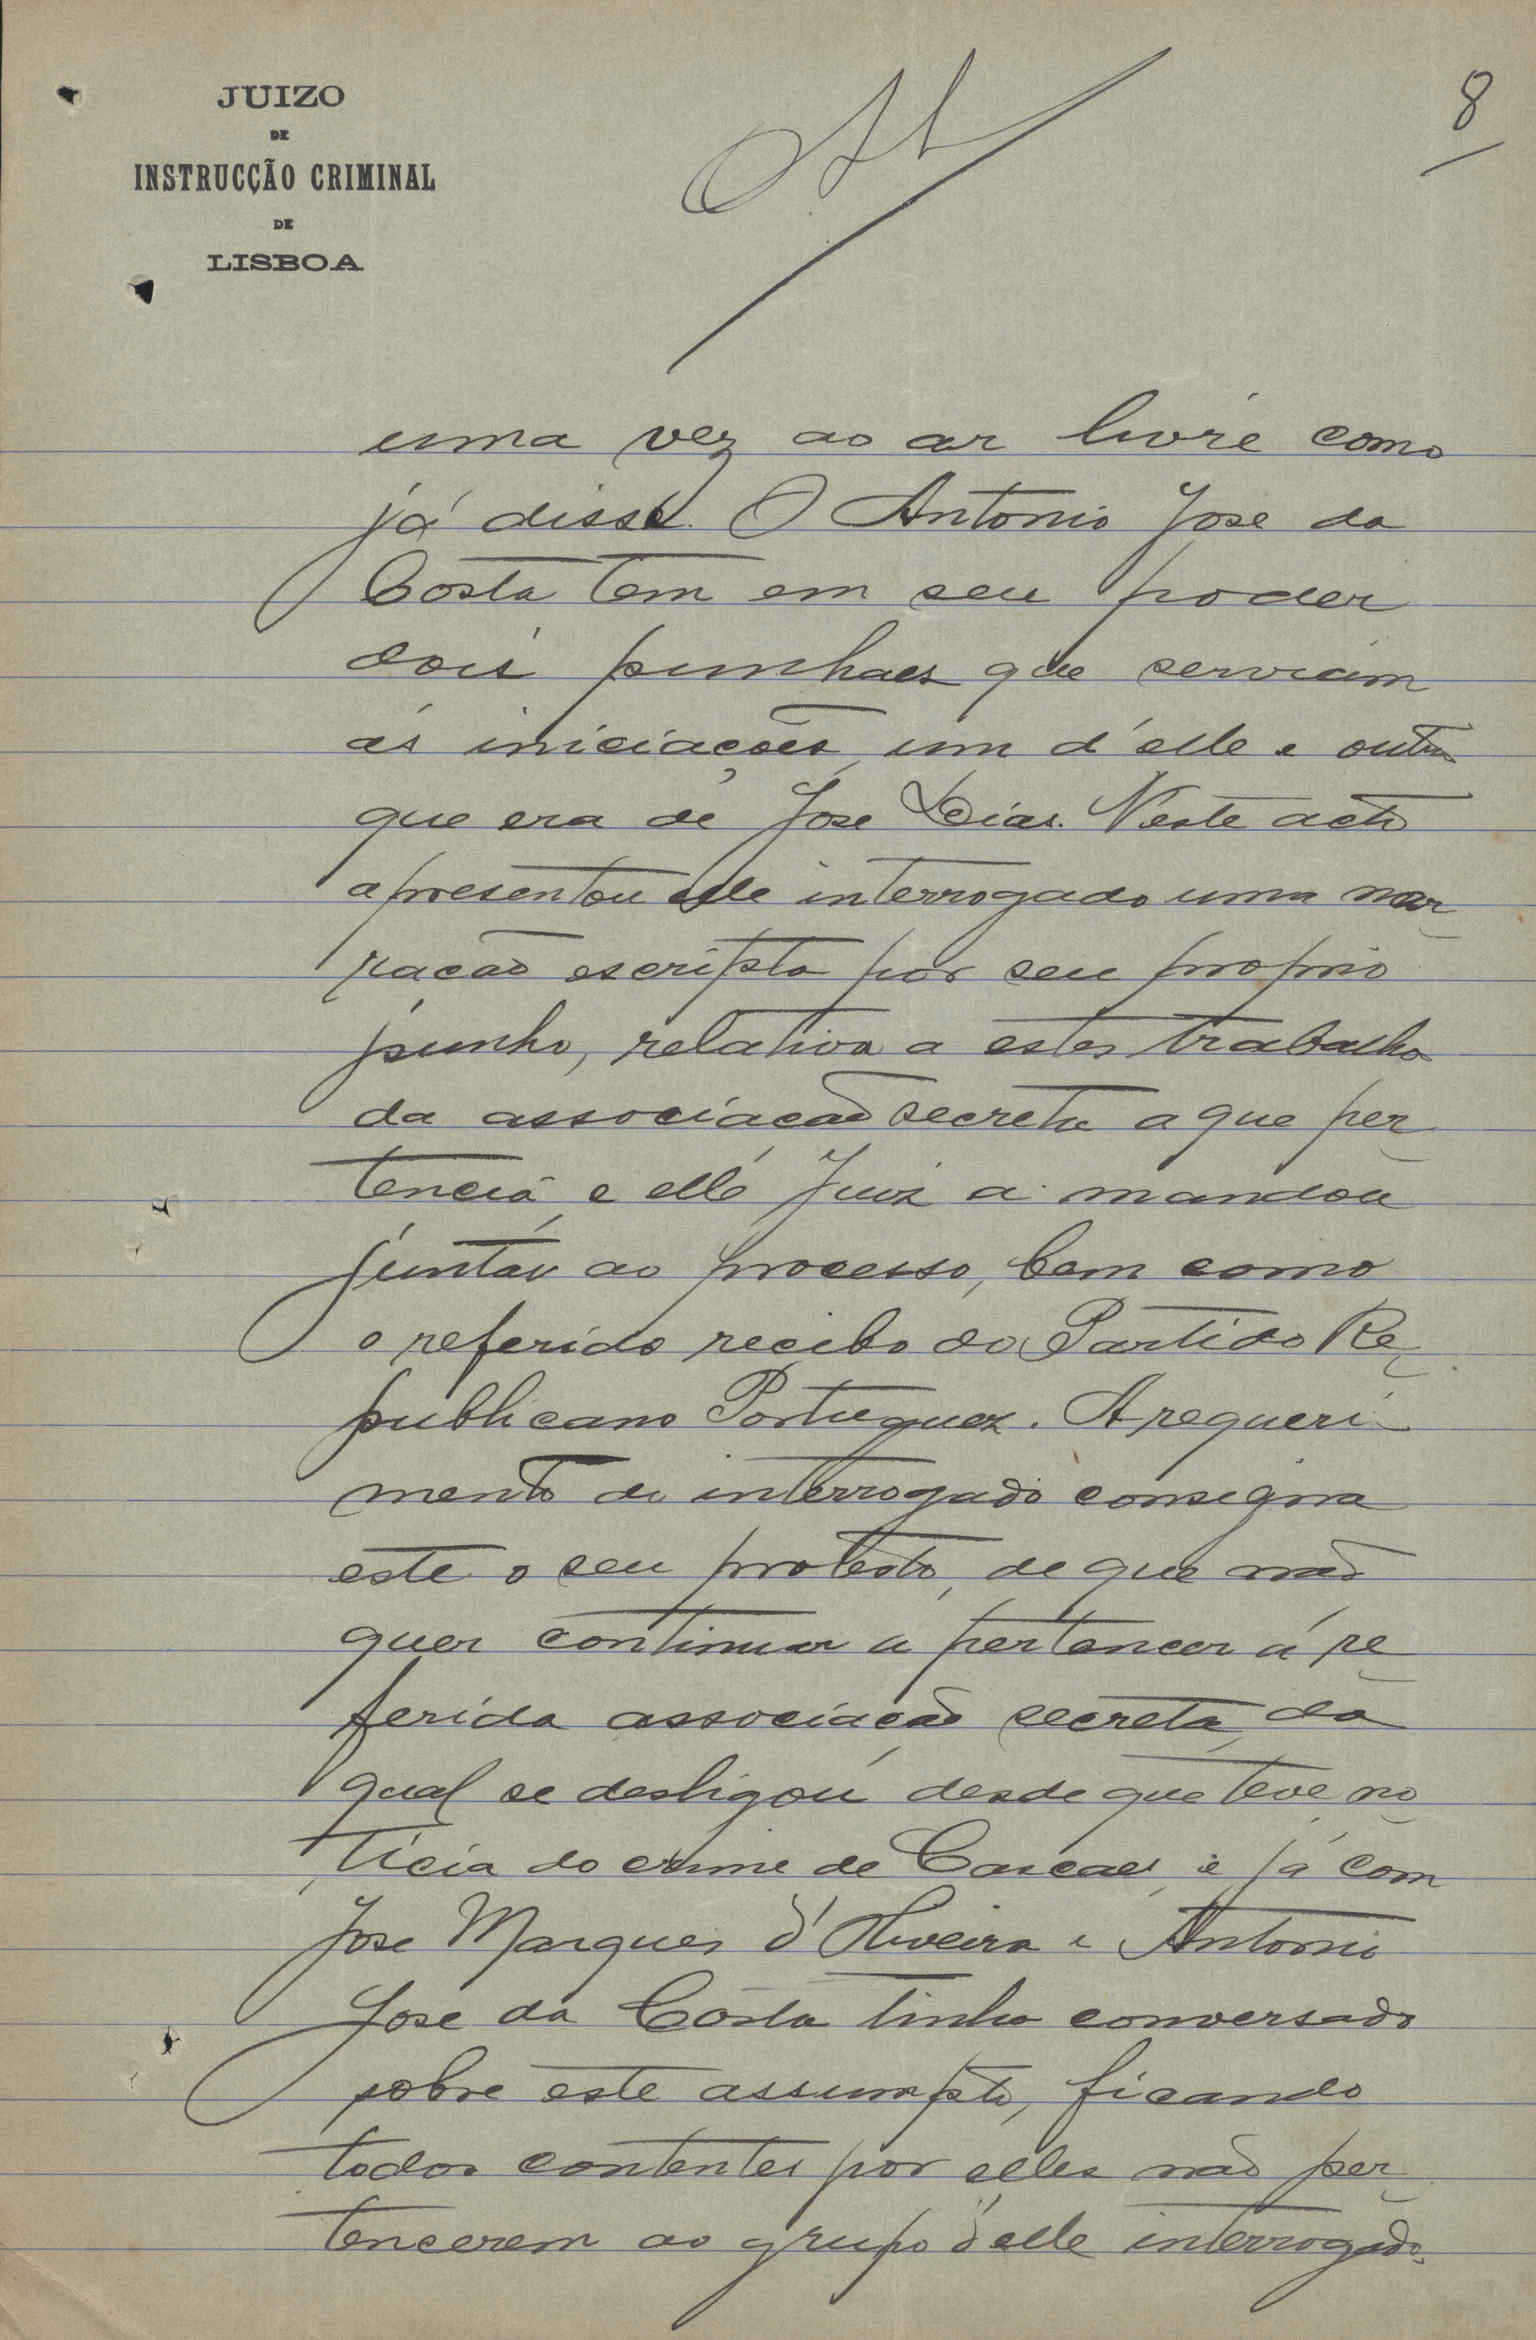 JUIZO
DE
INSTRUCÇÃO CRIMINAL
DE
LISBOA
8
uma vez ao ar livre como
já disse. O Antonio Jose da
Costa tem em seu poder
dois punhaes que serviam
ás iniciações, um d'elle e outro
que era de Jose Dias. Neste acto
apresentou elle interrogado uma nar
ração escripta por seu proprio
punho, relativa a estes trabalhos
da associação secreta a que per
tencia, e elle Juiz a mandou
juntar ao processo, bem como
o referido recibo do Partido Re
publicano Portuguez. A requeri
mento do interrogado consigna
este o seu protesto, de que não
quer continuar a pertencer á re
ferida associação secreta, da
qual se desligou desde que teve no
ticia do crime de Cascaes, e já com
Jose Marques d'Oliveira e Antonio
Jose da Costa tinha conversado
sobre este assumpto, ficando
todos contentes por elles não per
tencerem ao grupo d'elle interrogado.